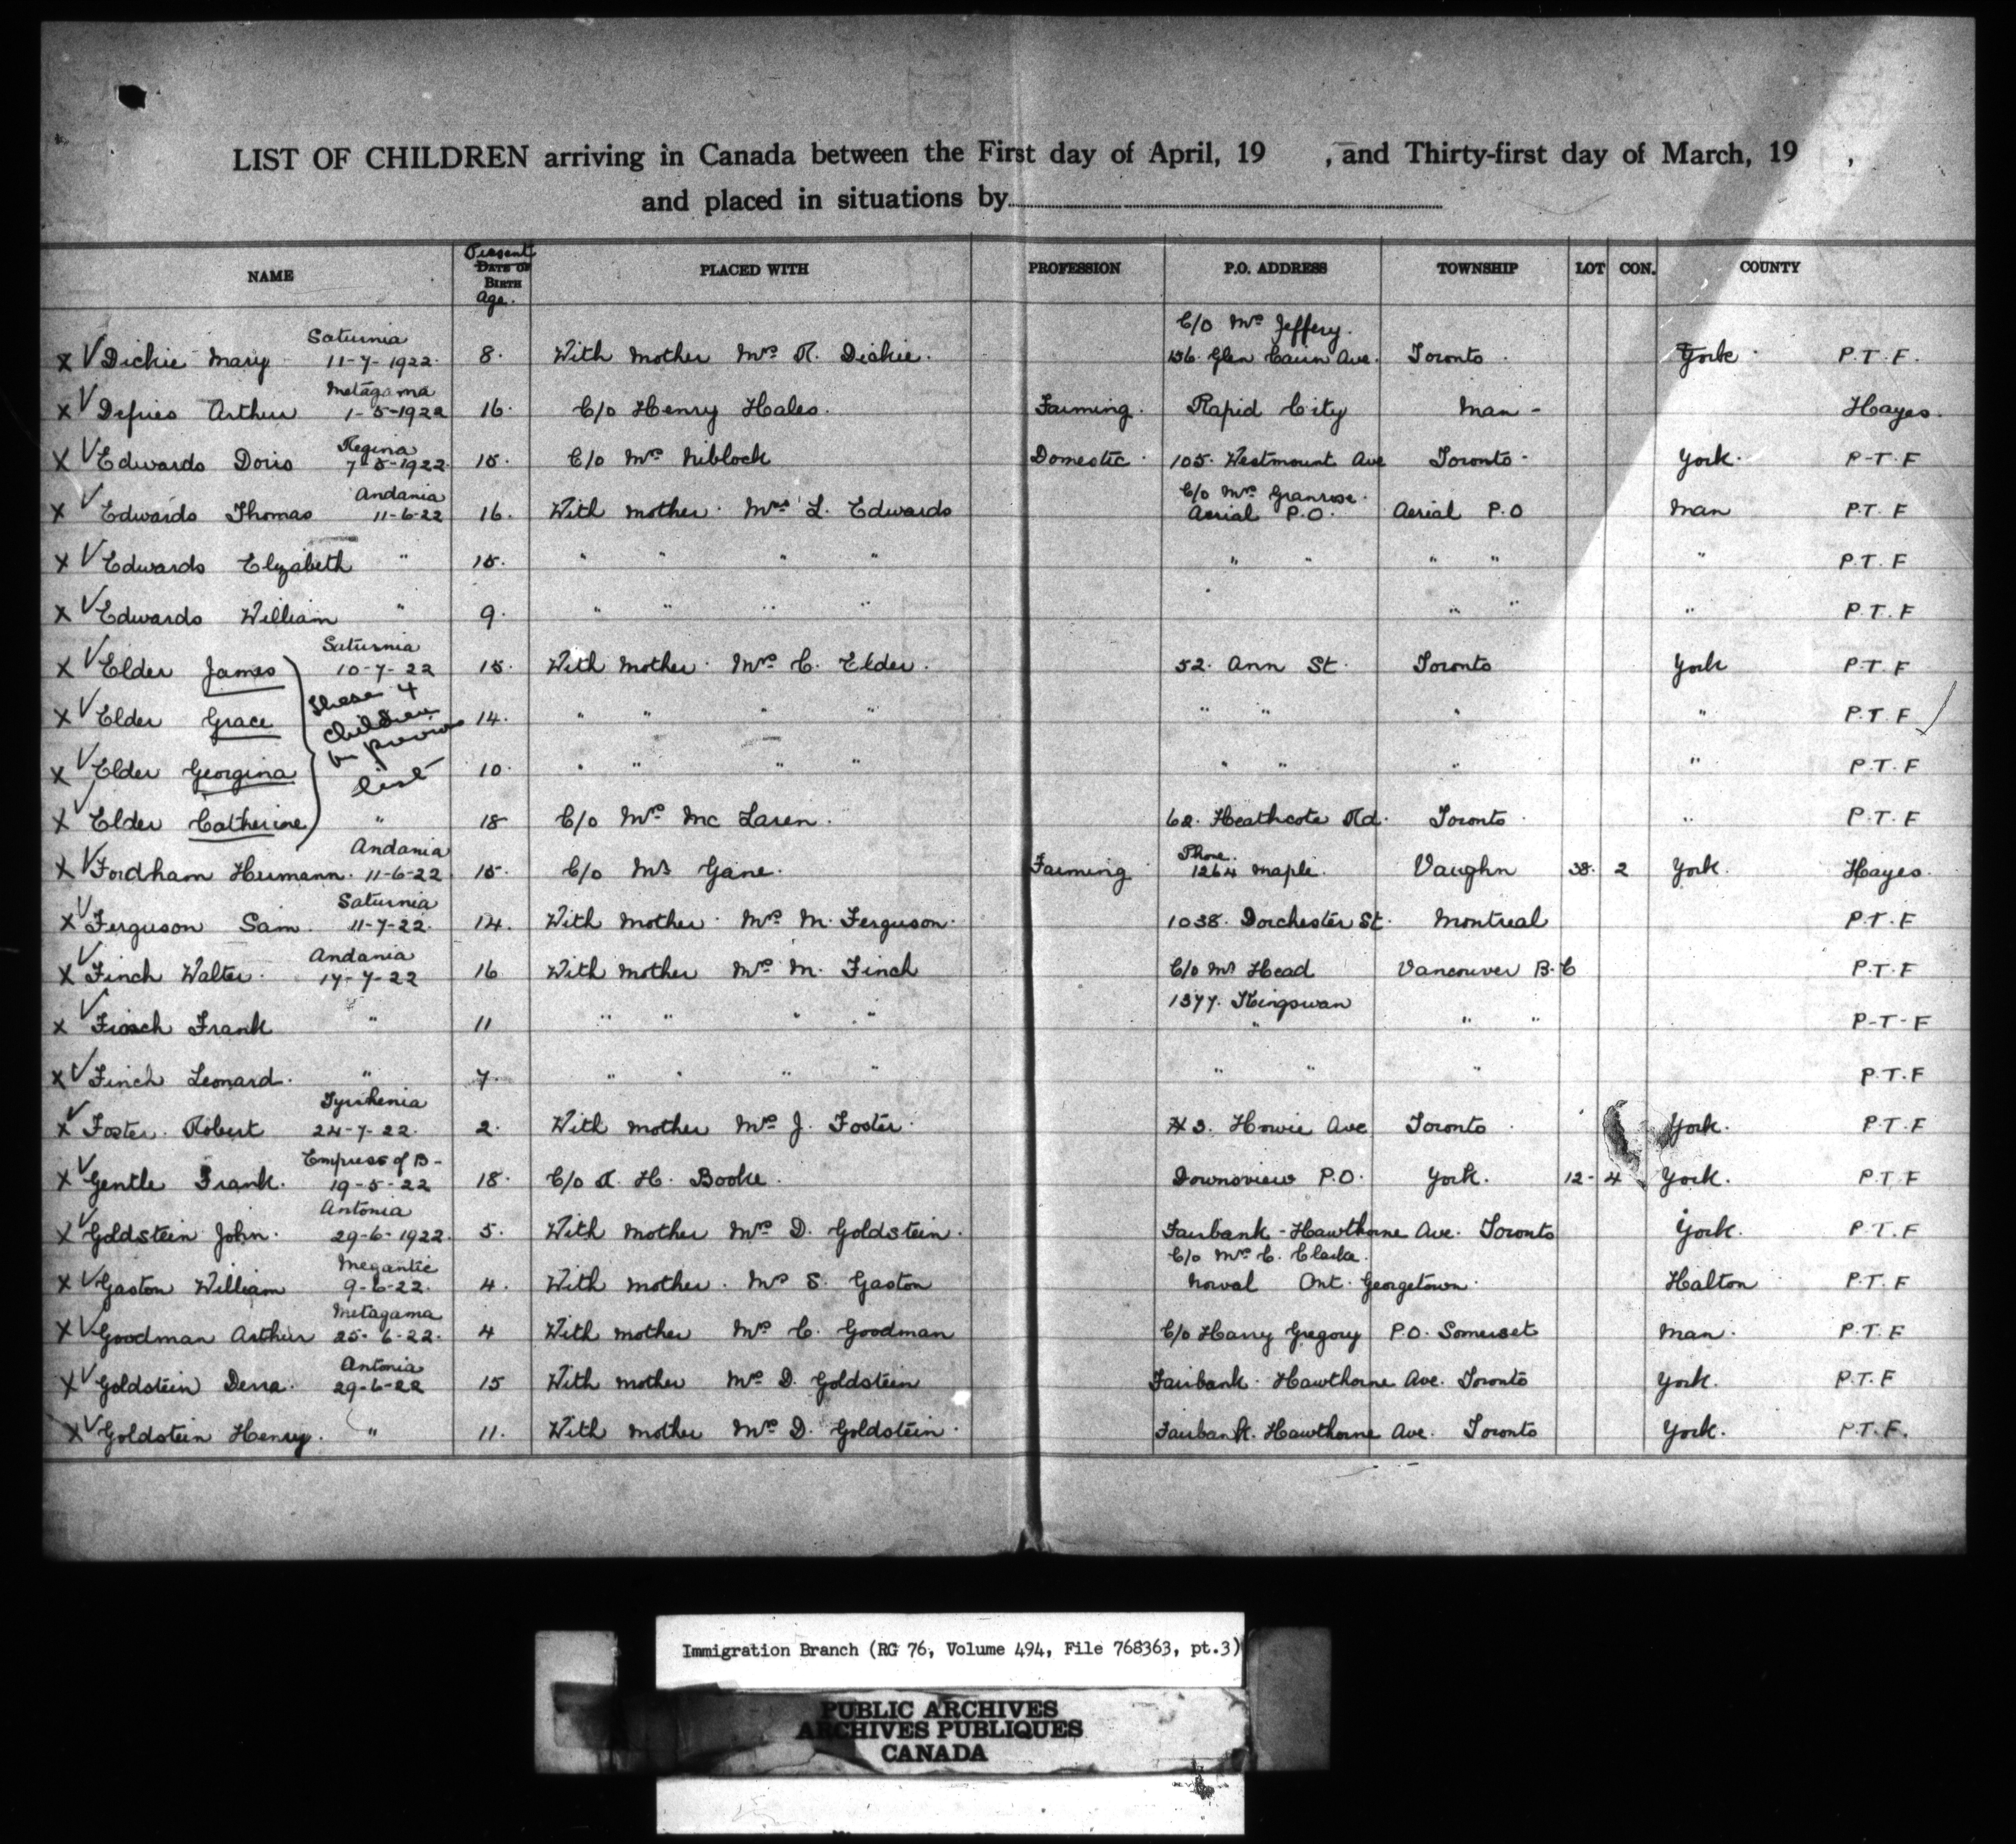 LIST OF CHILDREN arriving in Canada between the First day of April, 19 , and Thirty-first day of March, 19 ,
and placed in situations by
NAME Present DATE OF BIRTH Age. PLACED WITH PROFESSION P.O. ADDRESS TOWNSHIP LOT CON. COUNTY
Saturnia C/o Mrs Jeffery.
X V Dickie Mary 11-7-1922. 8. With mother Mrs R. Dickie. 136 Glen Cairn Ave. Toronto. York. P.T.F.
Metagama
X V Defries Arthur 1-5-1922 16. C/o Henry Hales. Farming. Rapid City Man - Hayes.
Regina
X V Edwards Doris 7-5-1922. 15. C/o Mrs Niblock Domestic. 105. Westmount Ave Toronto. York. P-T-F
Andania C/o Mrs Granrose.
X V Edwards Thomas 11-6-22 16. With mother. Mrs L. Edwards Aerial P.O. Aerial P.O Man P.T.F
X V Edwards Elizabeth " 15. " " " " " " " " " P.T.F
X V Edwards William " 9. " " " " " " " " P.T.F
Saturnia
X V Elder James 10-7-22 15. With mother. Mrs C. Elder. 52. Ann St. Toronto York P.T.F
X V Elder Grace 14. " " " " " " " P.T.F
These 4 children in previous list
X V Elder Georgina 10. " " " " " " " " P.T.F
X V Elder Catherine " 18 C/o Mrs Mc Laren. 62. Heathcote Rd. Toronto. " P.T.F
Andania Phone.
X V Fordham Hermann. 11-6-22 15. C/o Mr Gane. Farming 1264 Maple. Vaughn 38. 2 York. Hayes.
Saturnia
X V Ferguson Sam. 11-7-22. 14. With mother. Mrs M. Ferguson. 1038. Dorchester St. Montreal P.T.F
Andania
X V Finch Walter. 17-7-22 16 With mother Mrs M. Finch C/o Mr Head Vancouver B.C P.T.F
1377. Kingswan
X V Finch Frank " 11 " " " " " " " P-T-F
X V Finch Leonard. " 7. " " " " " " " P.T.F
Tyrrhenia
X V Foster. Robert 24-7-22. 2. With mother Mrs J. Foster. 3. Howie Ave Toronto. York. P.T.F
Empress of B-
X V Gentle Frank. 19-5-22 18. C/o A. H. Booke. Downsview P.O. York. 12- 4 York. P.T.F
Antonia
X V Goldstein John. 29-6-1922. 5. With mother Mrs D. Goldstein. Fairbank - Hawthorne Ave. Toronto York. P.T.F
Megantic C/o Mrs C. Clarke.
X V Gaston William 9-6-22. 4. With mother. Mrs S. Gaston Norval Ont. Georgetown. Halton P.T.F
Metagama
X V Goodman Arthur 25-6-22. 4 With mother Mrs C. Goodman C/o Harry Gregory P.O. Somerset Man. P.T.F
Antonia
X V Goldstein Dena. 29-6-22 15 With mother Mrs D. Goldstein Fairbank. Hawthorne Ave. Toronto York. P.T.F
X V Goldstein Henry. " 11. With mother Mrs D. Goldstein. Fairbank. Hawthorne Ave. Toronto York. P.T.F.
Immigration Branch (RG 76, Volume 494, File 768363, pt.3)
PUBLIC ARCHIVES
ARCHIVES PUBLIQUES
CANADA